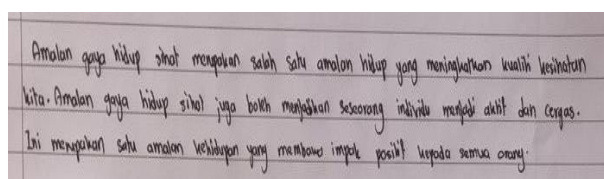 Amalan gaya hidup sihat merupakan salah satu amalan hidup yang meningkatkan kualiti kesihatan
kita. Amalan gaya hidup sihat juga boleh menjadikan seseorang individu menjadi aktif dan cergas.
Ini merupakan satu amalan kehidupan yang membawa impak positif kepada semua orang.